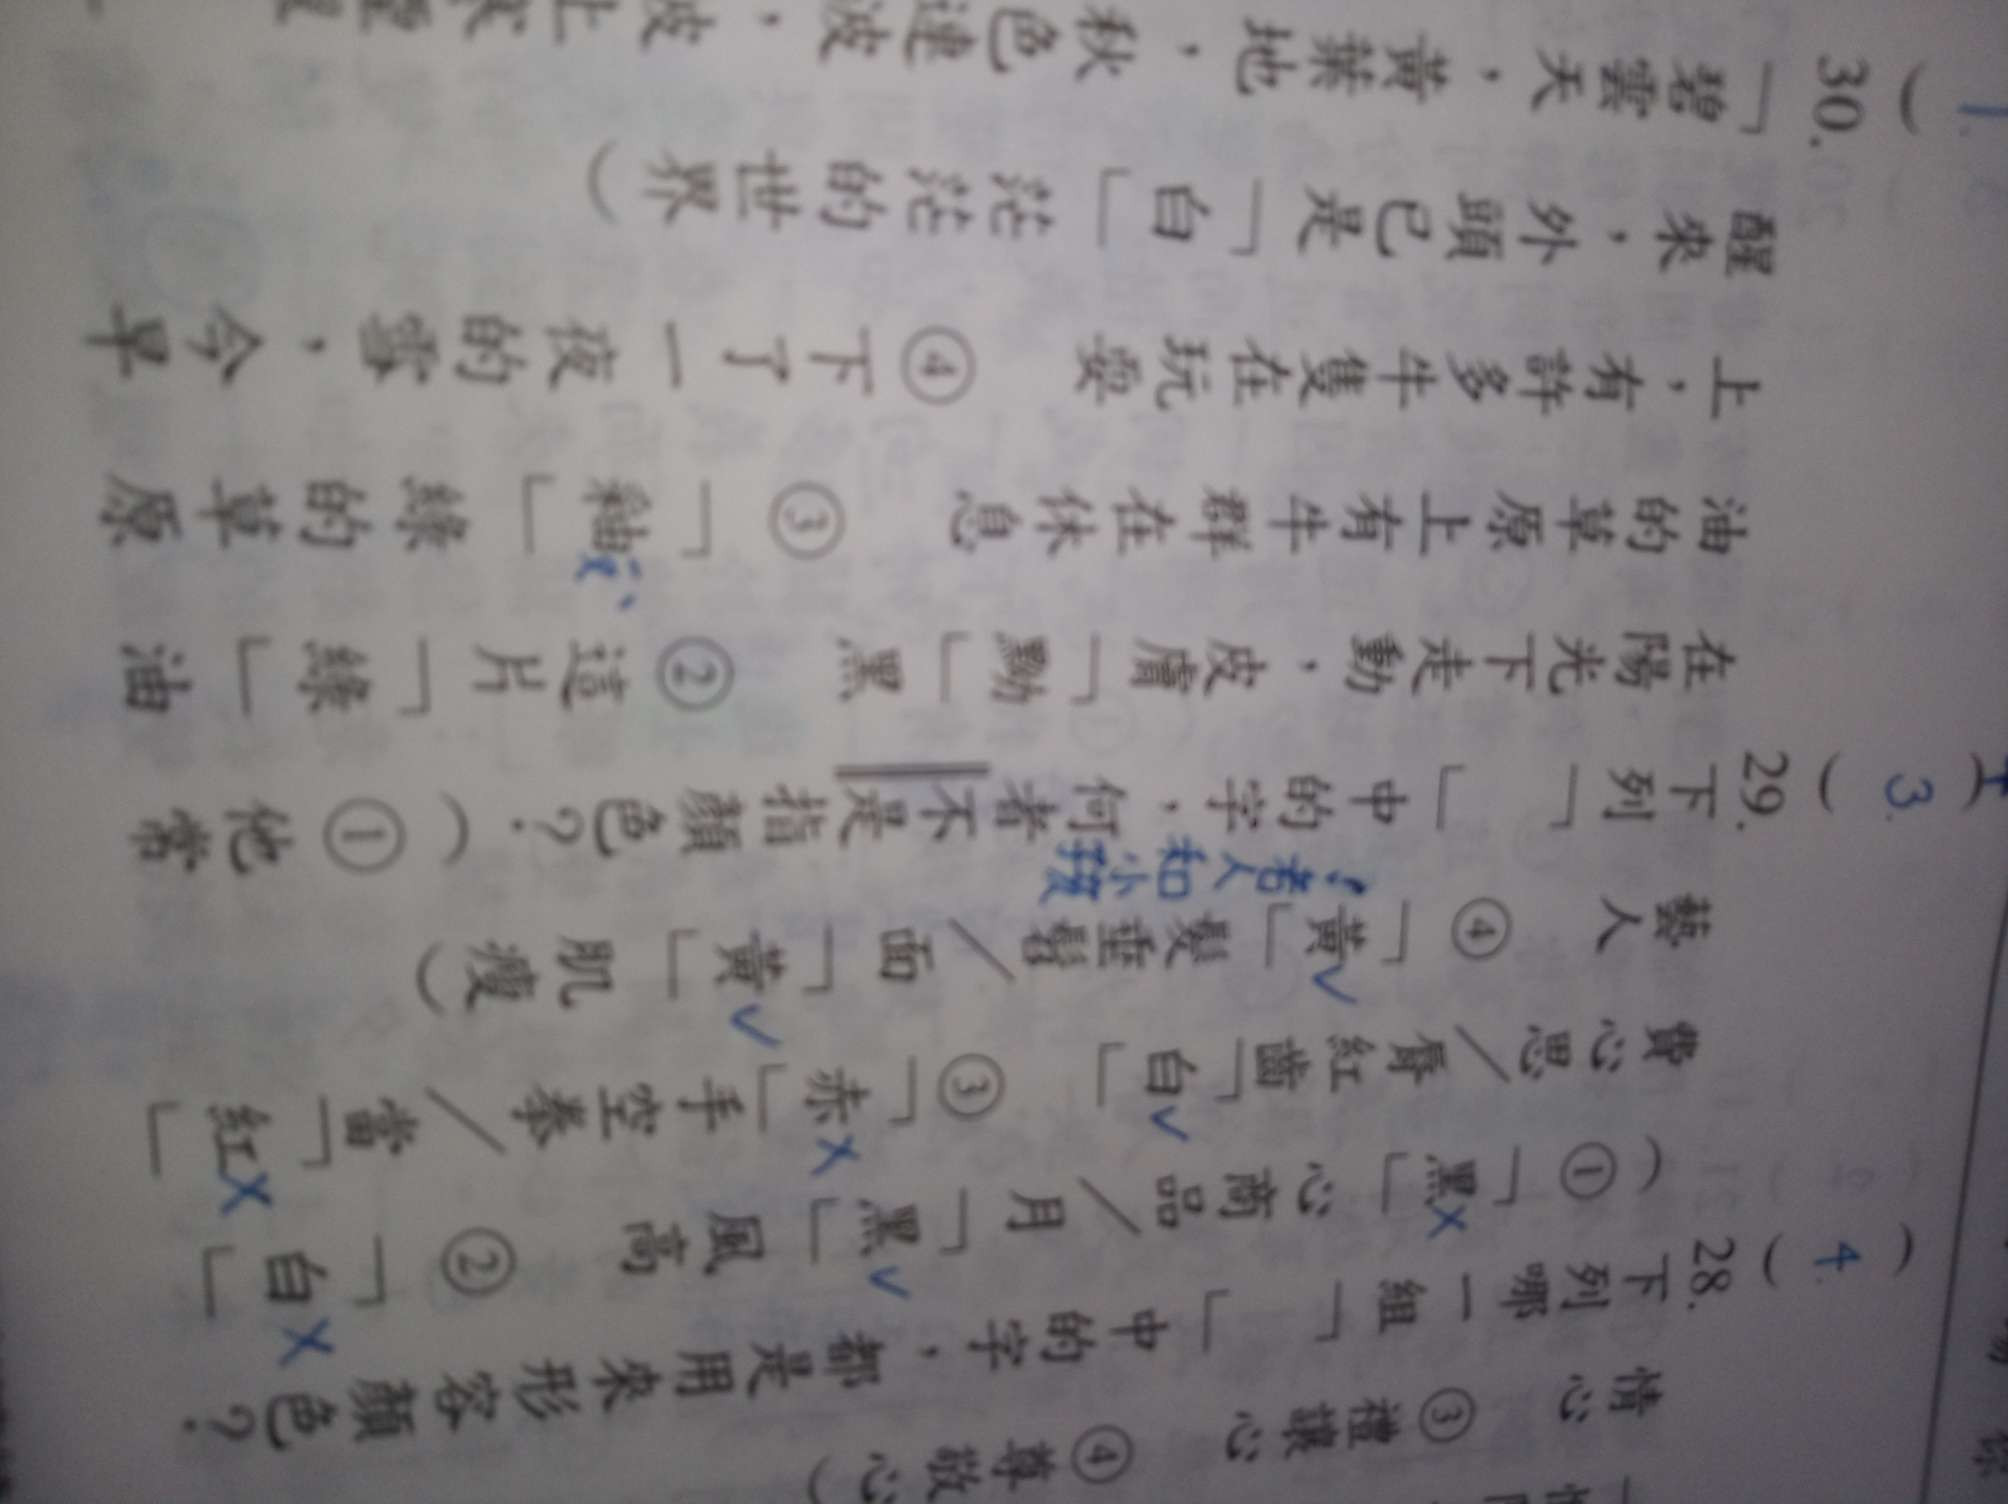 情心 ③禮讓心 ④尊敬心）
（4.）28.下列哪一組「 」中的字，都是用來形容顏色？
（①「黑」心商品／月「黑」風高 ②「白」
費心思／唇紅齒「白」 ③「赤」手空拳／當「紅」
藝人 ④「黃」髮垂髫／面「黃」肌瘦）
：老人和小孩
（3.）29.下列「 」中的字，何者不是指顏色？（①他常
在陽光下走動，皮膚「黝」黑 ②這片「綠」油
油的草原上有牛群在休息 ③「釉」綠的草原
上，有許多牛隻在玩耍 ④下了一夜的雪，今早
醒來，外頭已是「白」茫茫的世界）
（1.）30.「碧雲天，黃葉地，秋色連波，波上寒